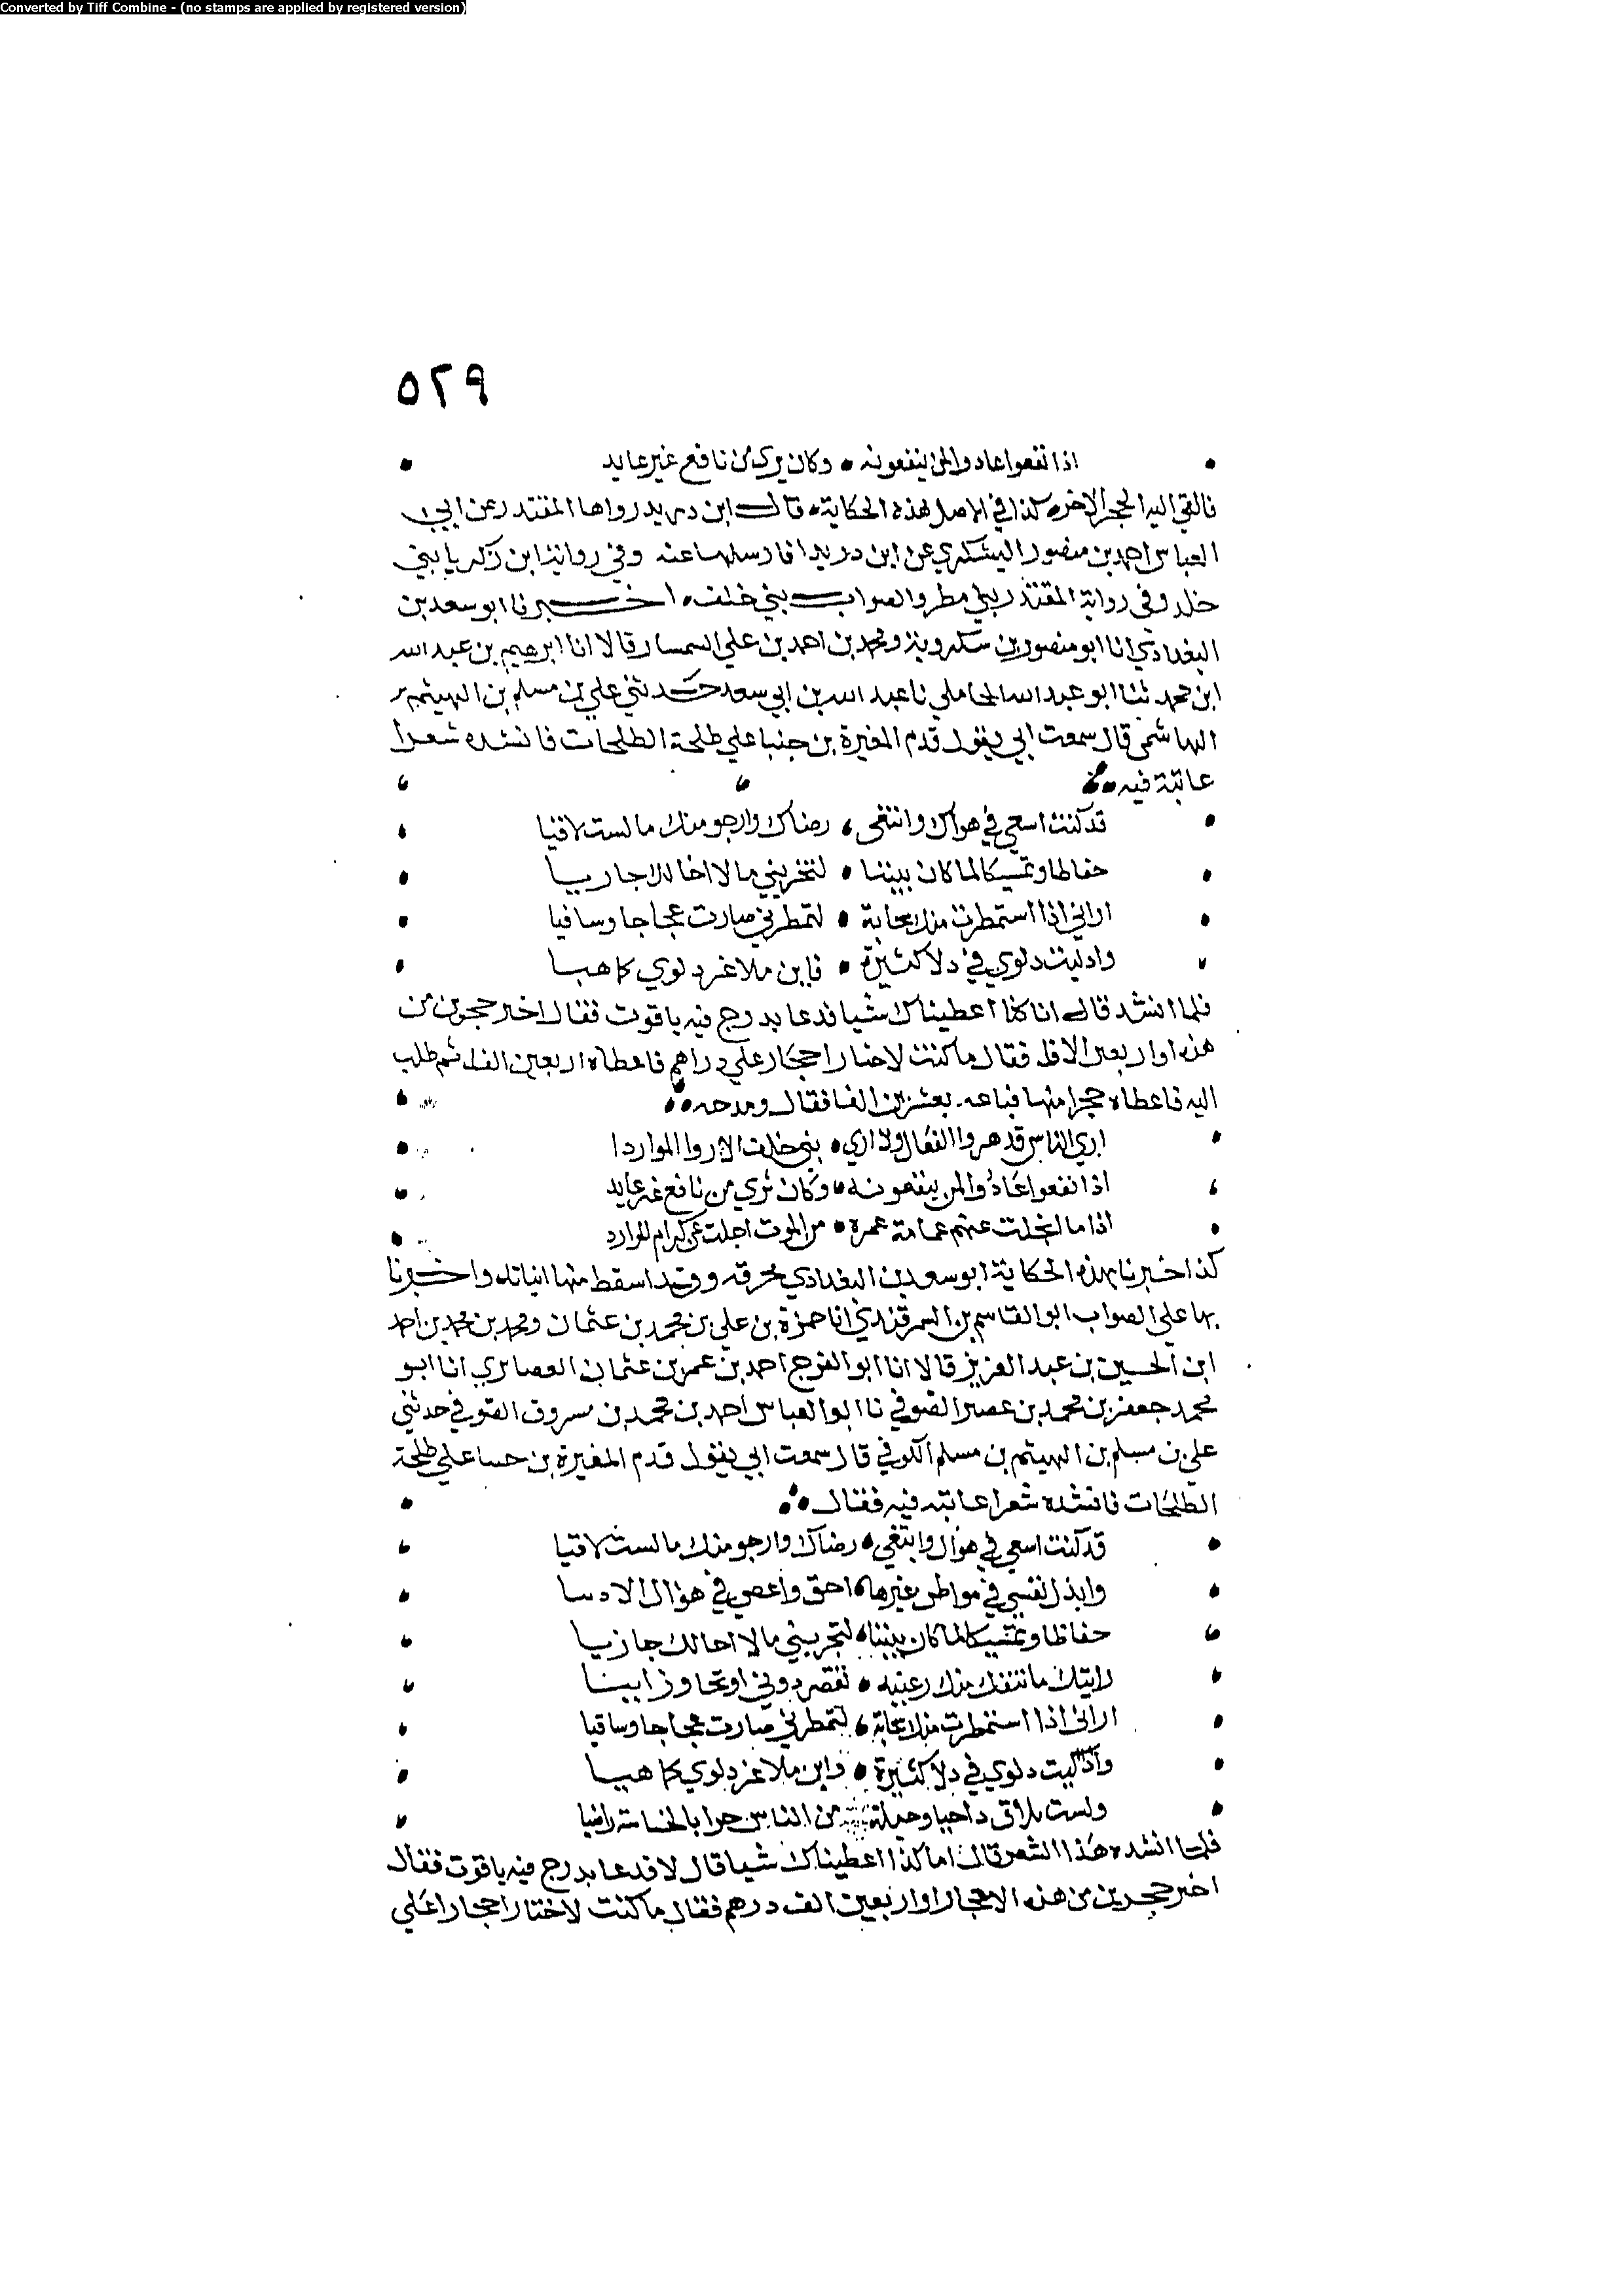 Converted by Tiff Combine - (no stamps are applied by registered version)
٥٢٩
اذا نفعوا عادوا لمن ينفعونه • وكان يرى من نافع غير عايد
فالقي اليه الحجر الاخر كذا في الاصل لهذه الحكاية قال ابن دريد رواها المقتدر عن ابي
العباس احمد بن منصور اليشكري عن ابن دريد اقارسلها عنه وفي رواية ابن زكريا بني
خلد وفي رواية المقتدر بني مطر والصواب بني خلف اخبرنا ابو سعد بن
البغدادي انا ابو منصور بن سكرويه ومحمد بن احمد بن علي السمسار قالا انا ابرهيم بن عبد الله
ابن محمد ثنا ابو عبد الله المحاملي نا عبد الله بن ابي سعد حدثني علي بن مسلم بن الهيثم
الهاشمي قال سمعت ابي يقول قدم المغيرة بن حنبا علي طلحة الطلحات فانشده شعرا
عاتبة فيه
قد كنت اسعي في هواك وابتغي • رضاك وارجو منك ما لست لاقيا
حفاظا وتمسيكا لما كان بيننا • لتجزيني ما لا اخالك جازيا
اراني اذا استمطرت منك سحابة • لتمطرني صارت عجاجا وسافيا
وادليت دلوي في دلا كثيرة • فابن ملا غير دلوي كما هيا
فلما انشد قال انا كنا اعطيناك شيا فدعا بدرج فيه ياقوت فقال اختر حجرين من
هذه او اربعين الاف فقال ما كنت لاختار احجار علي دراهم فاعطاه اربعين الفا ثم طلب
اليه فاعطاه حجرا منها فباعه بعشرين الفا فقال ومدحه
اري الناس قد هروا الفعال ولا اري • بني خلف الا روا الموارد
اذا نفعوا عادوا لمن ينفعونه • وكان تري من نافع غير عايد
اذا ما انجلت عنهم عمامة عمرة • من الموت اجلت عن كرام المواردِ
كذا اخبرنا بهذه الحكاية ابو سعد بن البغدادي محرفه وقد اسقط منها ابياتا واخبرنا
بها علي الصواب ابو القاسم بن السمرقندي انا حمزة بن علي بن محمد بن عثمان ومحمد بن محمد بن احمد
ابن الحسين بن عبد العزيز قالا انا ابو الفرج احمد بن عمر بن عثمان العصايري انا ابو
محمد جعفر بن محمد بن نصير الصوفي نا ابو العباس احمد بن محمد بن مسروق الصوفي حدثني
علي بن مسلم بن الهيثم بن مسلم الكوفي قال سمعت ابي يقول قدم المغيرة بن حسا علي طلحة
الطلحات فانشده شعرا عاتبه فيه فقال
قد كنت اسعي في هواك وابتغي • رضاك وارجو منك ما لست لاقيا
وابذل نفسي في مواطن غيرها • احق واعصي في هواك الادسا
حفاظا وتمسيكا لما كان بيننا • لتجزيني ما لا اخالك جازيا
رايتك ما تنفك منك رغبيه • تقصر دوني او تجاوز ابينا
اراني اذا استمطرت منك سحابة • لتمطرني صارت عجاجا وسافيا
وادليت دلوي في دلا كثيرة • وابن ملا غير دلوي كما هيا
ولست بلاق داحيا وحيلة من الناس حرا بالخساسة راضيا
فلما انشده هذا الشعر قال اما كنا اعطيناك شيا قال لا فدعا بدرج فيه ياقوت فقال
اختر حجرين من هذه الاحجار او اربعين الف درهم فقال ما كنت لاختار احجارا علي